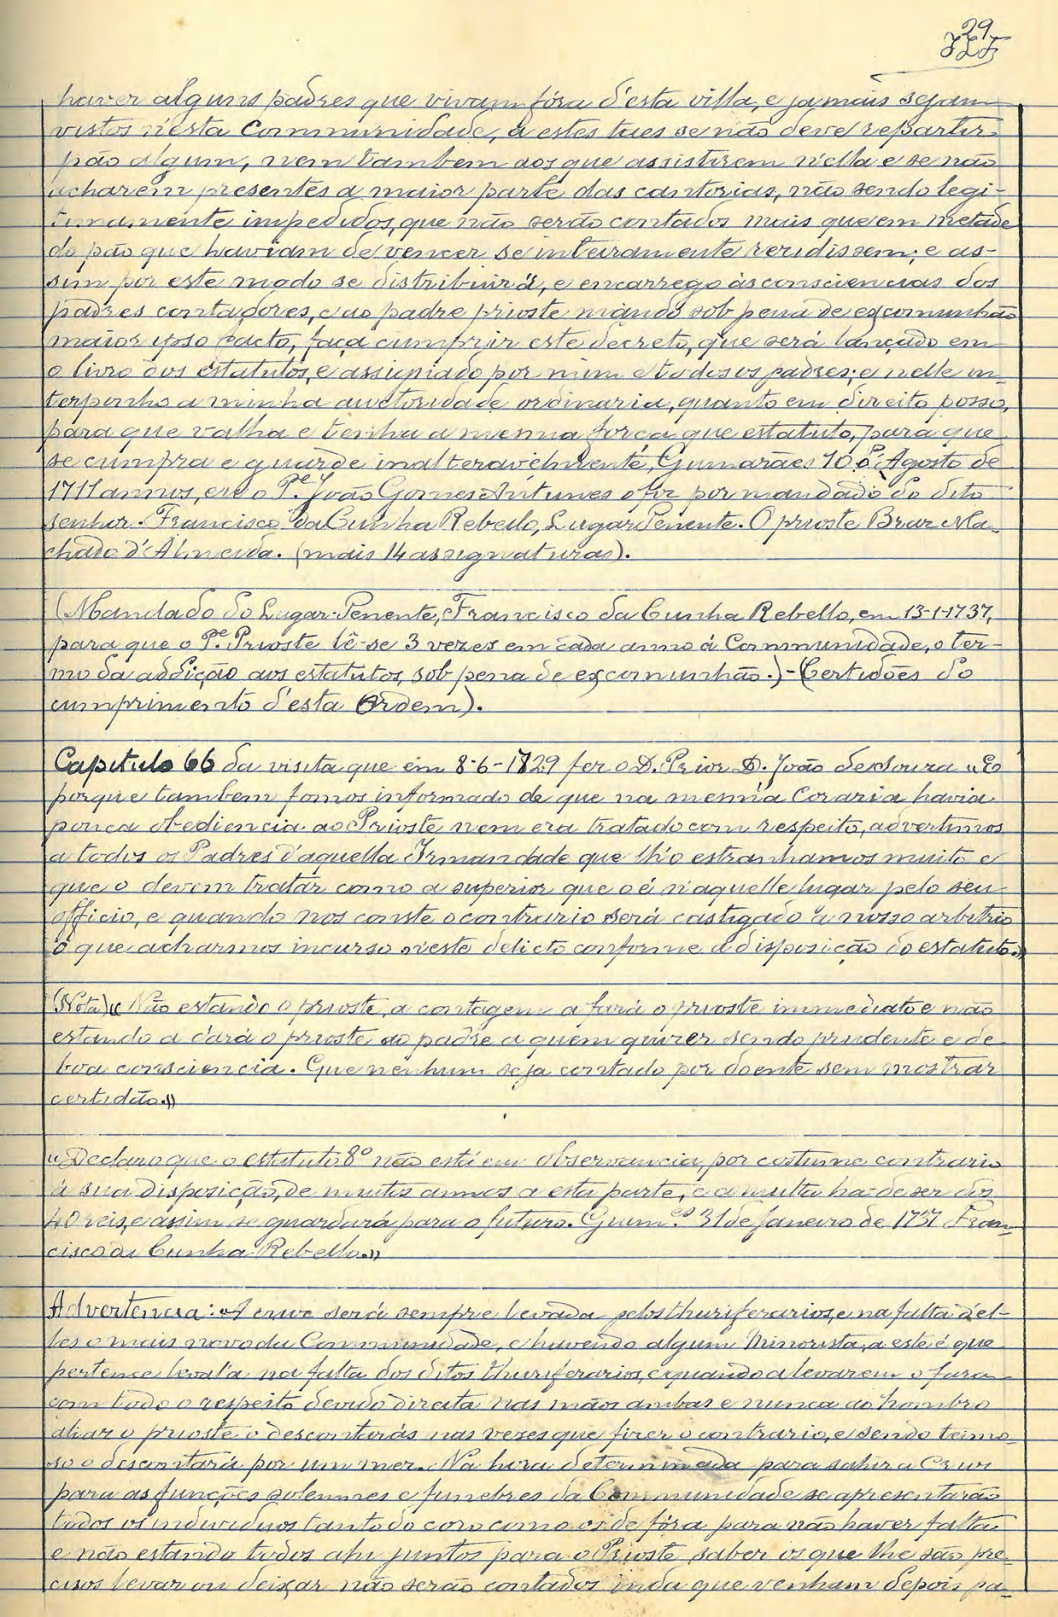 29
haver alguns padres que vivam fóra d'esta villa, e jamais sejam
vistos n'esta Communidade, a estes taes se não deve repartir
pão algum, nem tambem aos que assistirem n'ella e se não
acharem presentes a maior parte das cantorias, não sendo legi-
timamente impedidos, que não serão contados mais que em metade
do pão que haviam de vencer se inteiramente residissem; e as-
sim por este modo se distribuirá, e encarrego ás consciencias dos
padres contadores, e ao padre prioste mando sob pena de excomunhão
maior ipso facto, faça cumprir este decreto, que será lançado em
o livro dos estatutos, e assignado por mim e todos os padres; e nelle in-
terponho a minha auctoridade ordinaria, quanto em direito posso,
para que valha e tenha a mesma força que estatuto, para que
se cumpra e guarde inalteravelmente, Guimarães 10 d'Agosto de
1711 annos, eu o P.e João Gomes Antunes o fiz por mandado do dito
senhor. Francisco da Cunha Rebello, Lugar Tenente. O prioste Braz Ma-
chado d'Almeida. (mais 14 assignaturas).
(Mandado do Lugar-Tenente, Francisco da Cunha Rebello, em 13-1-1737,
para que o P.e Prioste lê-se 3 vezes em cada anno á Communidade, o ter-
mo da addição aos estatutos, sob pena de excomunhão.)-(Certidões do
cumprimento d'esta Ordem).
Capitulo 66 da visita que em 8-6-1829 fez o D. Prior D. João de Soura «E
porque tambem fomos informado de que na mesma Coraria havia
pouca obediencia ao Prioste nem era tratado com respeito, advertimos
a todos os Padres d'aquella Irmandade que lh'o estranhamos muito e
que o devem tratar como a superior que o é n'aquelle lugar pelo seu
officio, e quando nos conste o contrario será castigado a nosso arbitrio
o que acharmos incurso n'este delicto conforme a disposição do estatuto.»
(Nota) «Não estando o prioste, a contagem a fará o prioste immediato e não
estando a dará o prioste ao padre a quem quizer sendo prudente e de
boa consciencia. Que nenhum seja contado por doente sem mostrar
certidão.»
«Declaro que o estatuto 8º não está em observancia, por costume contrario
á sua disposição, de muitos annos a esta parte, e a multa ha-de ser dos
40 reis, e assim se guardará para o futuro. Guim.es 31 de Janeiro de 1737 Fran-
cisco da Cunha Rebello.»
Advertencia: «A cruz será sempre levada pelos thuriferarios, e na falta d'el-
les o mais novo da Communidade, e havendo algum Minorista, a este é que
pertence leval'a na falta dos ditos thuriferarios, e quando a levarem o farão
com todo o respeito devido direita nas mãos ambas e nunca ao hombro
aliaz o prioste o descontarás nas vezes que fizer o contrario, e sendo teimo-
so o descontará por um mez. Na hora determinada para sahir a Cruz
para as funções solemnes e funebres da Communidade se apresentarão
todos os individuos tanto do coro como os de fóra para não haver falta
e não estando todos ahi juntos para o Prioste saber os que lhe são pre-
cisos levar ou deixar não serão contados inda que venham depois pa-